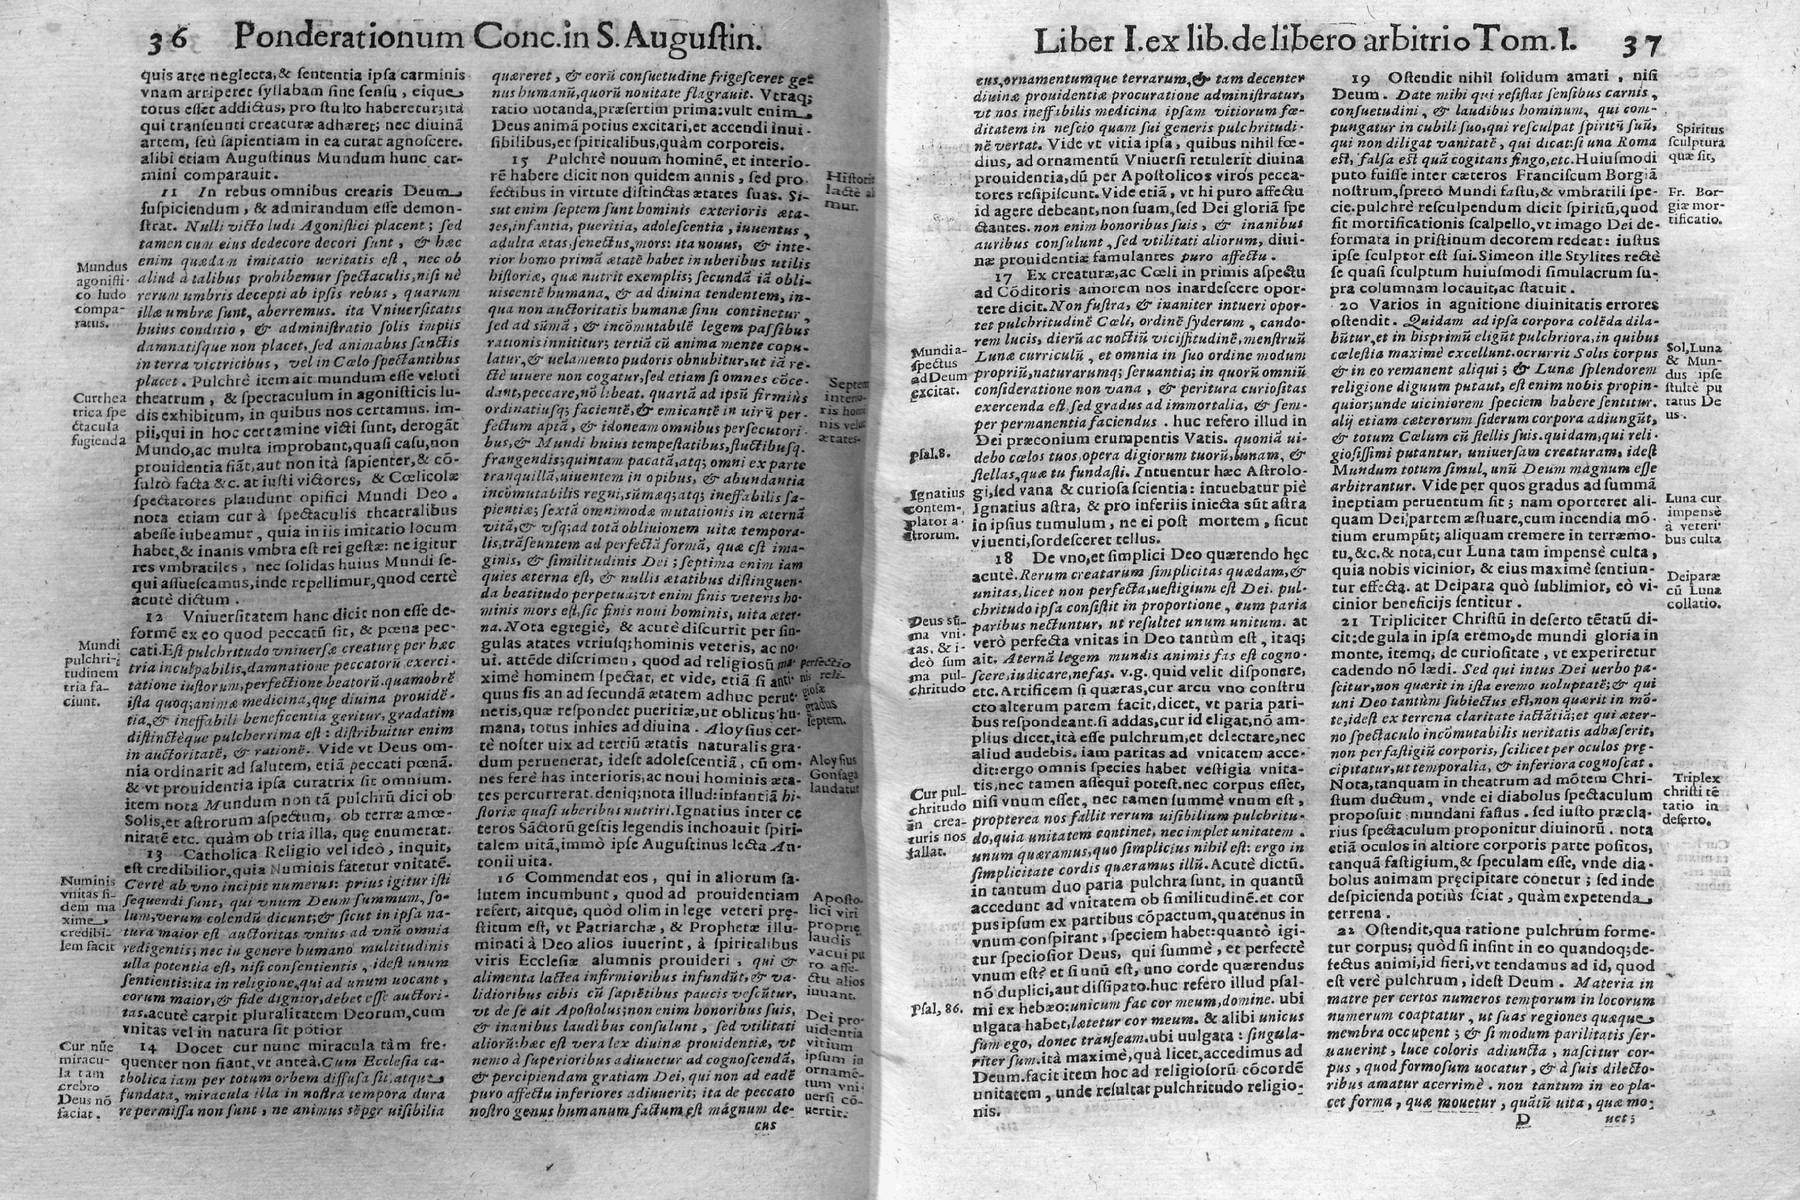 36 Ponderationum Conc. in S. Augustin.
quis arte neglecta, & sententia ipsa carminis
vnam arriperet syllabam sine sensu, eique
totus esset addictus, pro stulto haberetur; ità
qui transeunti creaturæ adhæret; nec diuinã
artem, seù sapientiam in ea curat agnoscere.
alibi etiam Augustinus Mundum hunc car-
mini comparauit.
11 In rebus omnibus creatis Deum
suspiciendum, & admirandum esse demon-
strat. Nulli victo ludi Agonistici placent; sed
tamen cum eius dedecore decori sunt, & hæc
enim quædam imitatio ueritatis est, nec ob
aliud à talibus prohibemur spectaculis, nisi nè
rerum umbris decepti ab ipsis rebus, quarum
illæ umbræ sunt, aberremus. ita Vniuersitatis
huius conditio, & administratio solis impiis
damnatisque non placet, sed animabus sanctis
in terra victricibus, vel in Cœlo spectantibus
placet. Pulchrè item ait mundum esse veluti
theatrum, & spectaculum in agonisticis lu-
dis exhibitum, in quibus nos certamus. im-
pii, qui in hoc certamine victi sunt, derogãt
Mundo, ac multa improbant, quasi casu, non
prouidentia fiãt, aut non ità sapienter, & cõ-
sultò facta &c. at iusti victores, & Cœlicolæ
spectatores plaudunt opifici Mundi Deo.
nota etiam cur à spectaculis theatralibus
abesse iubeamur, quia in iis imitatio locum
habet, & inanis vmbra est rei gestæ: ne igitur
res vmbratiles, nec solidas huius Mundi se-
qui assuescamus, inde repellimur, quod certè
acutè dictum.
12 Vniuersitatem hanc dicit non esse de-
formẽ ex eo quod peccatũ sit, & pœna pec-
cati. Est pulchritudo vniuersæ creaturę per hæc
tria inculpabilis, damnatione peccatorũ exerci-
tatione iustorum, perfectione beatorũ. quamobrẽ
ista quoq; animæ medicina, quę diuina prouidẽ-
tia, & ineffabili beneficentia geritur, gradatim
distinctèque pulcherrima est: distribuitur enim
in auctoritatẽ, & rationẽ. Vide vt Deus om-
nia ordinarit ad salutem, etiã peccati pœnã.
& vt prouidentia ipsa curatrix sit omnium.
item nota Mundum non tã pulchrũ dici ob
Solis, et astrorum aspectum, ob terræ amœ-
nitatẽ etc. quàm ob tria illa, quę enumerat.
13 Catholica Religio vel ideò, inquit,
est credibilior, quia Numinis fatetur vnitatẽ.
Certè ab vno incipit numerus: prius igitur isti
sequendi sunt, qui vnum Deum summum, so-
lum, verum colendũ dicunt; & sicut in ipsa na-
tura maior est auctoritas vnius ad vnũ omnia
redigentis; nec in genere humano multitudinis
ulla potentia est, nisi consentientis, idest unum
sentientis: ita in religione, qui ad unum uocant,
eorum maior, & fide dignior, debet esse auctori-
tas. acutè carpit pluralitatem Deorum, cum
vnitas vel in natura sit potior
14 Docet cur nunc miracula tàm fre-
quenter non fiant, vt anteà. Cum Ecclesia ca-
tholica iam per totum orbem diffusa sit, atque
fundata, miracula illa in nostra tempora dura
re permissa non sunt, ne animus sẽper uisibilia
Mundus
agonisti-
co ludo
compa-
ratus.
Cur thea
trica spe
ctacula
fugienda
Mundi
pulchri-
tudinem
tria fa-
ciunt.
Numinis
vnitas fi-
dem ma
xime
credibi-
lem facit
Cur nũc
miracu-
la tam
crebro
Deus nõ
faciat.
quæreret, & eorũ consuetudine frigesceret ge-
nus humanũ, quorũ nouitate flagrauit. Vtraq;
ratio notanda, præsertim prima: vult enim
Deus animã potius excitari, et accendi inui-
sibilibus, et spiritalibus, quàm corporeis.
15 Pulchrè nouum hominẽ, et interio-
rẽ habere dicit non quidem annis, sed pro-
fectibus in virtute distinctas ætates suas. Si-
cut enim septem sunt hominis exterioris æta-
tes, infantia, pueritia, adolescentia, iuuentus,
adulta ætas, senectus, mors: ita nouus, & inte-
rior homo primã ætatẽ habet in uberibus utilis
historiæ, quæ nutrit exemplis; secundã iã obli-
uiscentẽ humana, & ad diuina tendentem, in-
qua non auctoritatis humanæ sinu continetur,
sed ad sũmã, & incõmutabilẽ legem passibus
rationis innititur; tertiã cũ anima mente copu-
latur, & uelamento pudoris obnubitur, ut iã re-
ctè uiuere non cogatur, sed etiam si omnes cõce-
dant, peccare, nõ libeat. quartã ad ipsũ firmiùs
ordinatiusq; facientẽ, & emicantẽ in uirũ per-
fectum aptã, & idoneam omnibus persecutori-
bus, & Mundi huius tempestatibus, fluctibusq.
frangendis; quintam pacatã, atq; omni ex parte
tranquillã, uiuentem in opibus, & abundantia
incõmutabilis regni, sũmæq; atq; ineffabilis sa-
pientiæ; sextã omnimodæ mutationis in æternã
vitã, & vsq; ad totã obliuionem uitæ tempora-
lis, trãseuntem ad perfectã formã, quæ est ima-
ginis, & similitudinis Dei; septima enim iam
quies æterna est, & nullis ætatibus distinguen-
da beatitudo perpetua; vt enim finis veteris ho-
minis mors est, sic finis noui hominis, uita æter-
na. Nota egregiè, & acutè discurrit per sin-
gulas ætates vtriusq; hominis veteris, ac no-
ui. attẽde discrimen, quod ad religiosũ ma-
ximè hominem spectat, et vide, etiã si anti-
quus sis an ad secundã ætatem adhuc perue-
neris, quæ respondet pueritiæ, ut oblitus hu-
mana, totus inhies ad diuina. Aloysius cer-
tè noster uix ad tertiũ ætatis naturalis gra-
dum peruenerat, idest adolescentiã, cũ om-
nes ferè has interioris, ac noui hominis æta-
tes percurrerat. deniq; nota illud: infantiã hi-
storiæ quasi uberibus nutriri. Ignatius inter ce
teros Sãctorũ gestis legendis inchoauit spiri-
talem uitã, immò ipse Augustinus lecta An-
tonii uita.
16 Commendat eos, qui in aliorum sa-
lutem incumbunt, quod ad prouidentiam
refert, aitque, quòd olim in lege veteri prę-
stitum est, vt Patriarchæ, & Prophetæ illu-
minati à Deo alios iuuerint, à spiritalibus
viris Ecclesiæ alumnis prouideri, qui &
alimenta lactea infirmioribus infundũt, & va-
lidioribus cibis cũ sapiẽtibus paucis vescũtur,
vt de se ait Apostolus; non enim honoribus suis,
& inanibus laudibus consulunt, sed vtilitati
aliorũ: hæc est vera lex diuinæ prouidentiæ, vt
nemo à superioribus adiuuetur ad cognoscendã,
& percipiendam gratiam Dei, qui non ad eadẽ
puro affectu inferiores adiuuerit; ita de peccato
nostro genus humanum factum est magnum de-
cus
lactẽ
mur.
Septem
perfectio
gradus
septem.
Aloysius
Gonsaga
laudatur
Aposto-
lici viri
propriẽ
laudis
vacui pu
ro affe-
ctu alios
iuuant.
Dei pro-
uidentia
vitium
ipsum in
ornamẽ-
tum vni-
uersi cõ-
uertit.
Liber I. ex lib. de libero arbitrio Tom. I. 37
cus, ornamentumque terrarum, & tam decenter
diuinæ prouidentiæ procuratione administratur,
vt nos ineffabilis medicina ipsam vitiorum fœ-
ditatem in nescio quam sui generis pulchritudi-
nẽ vertat. Vide vt vitia ipsa, quibus nihil fœ-
dius, ad ornamentũ Vniuersi retulerit diuina
prouidentia, dũ per Apostolicos viros pecca-
tores resipiscunt. Vide etiã, vt hi puro affectu
id agere debeant, non suam, sed Dei gloriã spe
ctantes. non enim honoribus suis, & inanibus
auribus consulunt, sed utilitati aliorum, diui-
næ prouidentiæ famulantes puro affectu.
17 Ex creaturæ, ac Cœli in primis aspectu
ad Cõditoris amorem nos inardescere opor-
tere dicit. Non fustra, & inaniter intueri opor-
tet pulchritudinẽ Cœli, ordinẽ syderum, cando-
rem lucis, dierũ ac noctiũ vicissitudinẽ, menstruũ
Lunæ curriculũ, et omnia in suo ordine modum
propriũ, naturarumq; seruantia; in quorũ omniũ
consideratione non vana, & peritura curiositas
exercenda est, sed gradus ad immortalia, & sem-
per permanentia faciendus. huc refero illud in
Dei præconium erumpentis Vatis. quoniã ui-
debo cœlos tuos, opera digiorum tuorũ, lunam, &
stellas, quæ tu fundasti. Intuentur hæc Astrolo-
gi, sed vana & curiosa scientia: intuebatur piè
Ignatius astra, & pro inferiis iniecta sũt astra
in ipsius tumulum, ne ei post mortem, sicut
viuenti, sordesceret tellus.
18 De vno, et simplici Deo quærendo hęc
acutè. Rerum creatarum simplicitas quædam, &
unitas, licet non perfecta, uestigium est Dei. pul-
chritudo ipsa consistit in proportione, cum paria
paribus nectuntur, ut resultet unum unitum. at
verò perfecta vnitas in Deo tantùm est, itaq;
ait. Æternã legem mundis animis fas est cogno-
scere, iudicare, nefas. v. g. quid velit disponere,
etc. Artificem si quæras, cur arcu vno constru
cto alterum parem facit, dicet, vt paria pari-
bus respondeant. si addas, cur id eligat, nõ am-
plius dicet, ità esse pulchrum, et delectare, nec
aliud audebis. iam paritas ad vnitatem acce-
dit: ergo omnis species habet vestigia vnita-
tis, nec tamen assequi potest. nec corpus esset,
nisi vnum esset, nec tamen summè vnum est,
propterea nos fallit rerum uisibilium pulchritu-
do, quia unitatem continet, nec implet unitatem.
unum quæramus, quo simplicius nihil est: ergo in
simplicitate cordis quæramus illũ. Acutè dictũ.
in tantum duo paria pulchra sunt, in quantũ
accedunt ad vnitatem ob similitudinẽ. et cor
pus ipsum ex partibus cõpactum, quatenus in
vnum conspirant, speciem habet: quantò igi-
tur speciosior Deus, qui summè, et perfectè
vnum est? et si unũ est, uno corde quærendus
nõ duplici, aut dissipato. huc refero illud psal-
mi ex hebæo: unicum fac cor meum, domine. ubi
ulgata habet, lætetur cor meum. & alibi unicus
sum ego, donec transeam. ubi uulgata: singula-
riter sum. ità maximè, quà licet, accedimus ad
Deum. facit item hoc ad religiosorũ cõcordẽ
unitatem, unde resultat pulchritudo religio-
nis.
Mundi a-
spectus
ad Deum
excitat.
Psal. 8.
Ignatius
contem-
plator a-
strorum.
Deus sũ-
ma vni-
tas, & i-
deò sum
ma pul-
chritudo
Cur pul-
chritudo
in crea-
turis nos
fallat.
Psal, 86.
19 Ostendit nihil solidum amari, nisi
Deum. Date mihi qui resistat sensibus carnis,
consuetudini, & laudibus hominum, qui com-
pungatur in cubili suo, qui resculpat spiritũ suũ,
qui non diligat vanitatẽ, qui dicat: si una Roma
est, falsa est quã cogitans fingo, etc. Huiusmodi
puto fuisse inter cæteros Franciscum Borgiã
nostrum, spreto Mundi fastu, & vmbratili spe-
cie. pulchrè resculpendum dicit spiritũ, quod
fit mortificationis scalpello, vt imago Dei de-
formata in pristinum decorem redeat: iustus
ipse sculptor est sui. Simeon ille Stylites rectè
se quasi sculptum huiusmodi simulacrum su-
pra columnam locauit, ac statuit.
20 Varios in agnitione diuinitatis errores
ostendit. Quidam ad ipsa corpora colẽda dila-
bũtur, et in his primũ eligũt pulchriora, in quibus
cœlestia maximè excellunt. ocrurrit Solis corpus
& in eo remanent aliqui; & Lunæ splendorem
religione diguum putant, est enim nobis propin-
quior; unde uiciniorem speciem habere sentitur.
alij etiam cæterorum siderum corpora adiungũt,
& totum Cœlum cũ stellis suis. quidam, qui reli-
giosissimi putantur, uniuersam creaturam, idest
Mundum totum simul, unũ Deum magnum esse
arbitrantur. Vide per quos gradus ad summã
ineptiam peruentum sit; nam oporteret ali-
quam Dei partem æstuare, cum incendia mõ-
tium erumpũt; aliquam cremere in terræmo-
tu, &c. & nota, cur Luna tam impensè culta,
quia nobis vicinior, & eius maximè sentiun-
tur effecta. at Deipara quò sublimior, eò vi-
cinior beneficijs sentitur.
21 Tripliciter Christũ in deserto tẽtatũ di-
cit: de gula in ipsa eremo, de mundi gloria in
monte, itemq; de curiositate, vt experiretur
cadendo nõ lædi. Sed qui intus Dei uerbo pa-
scitur, non quærit in ista eremo uoluptatẽ; & qui
uni Deo tantùm subiectus est, non quærit in mõ-
te, idest ex terrena claritate iactãtiã; et qui æter-
no spectaculo incõmutabilis ueritatis adhæserit,
non per fastigiũ corporis, scilicet per oculos prę-
cipitatur, ut temporalia, & inferiora cognoscat.
Nota, tanquam in theatrum ad mõtem Chri-
stum ductum, vnde ei diabolus spectaculum
proposuit mundani fastus. sed iusto præcla-
rius spectaculum proponitur diuinorũ. nota
etiã oculos in altiore corporis parte positos,
tanquã fastigium, & speculam esse, vnde dia-
bolus animam pręcipitare conetur; sed inde
despicienda potiùs sciat, quàm expetenda
terrena.
22 Ostendit, qua ratione pulchrum forme-
tur corpus; quòd si insint in eo quandoq; de-
fectus animi, id fieri, vt tendamus ad id, quod
est verè pulchrum, idest Deum. Materia in
matre per certos numeros temporum in locorum
numerum coaptatur, ut suas regiones quæque
membra occupent; & si modum parilitatis ser-
uauerint, luce coloris adiuncta, nascitur cor-
pus, quod formosum uocatur, & à suis dilecto-
ribus amatur acerrimè. non tantum in eo pla-
cet forma, quæ mouetur, quãtũ uita, quæ mo-
D uet;
Spiritus
sculptura
quæ sit,
Fr. Bor-
giæ mor-
tificatio.
Sol, Luna
& Mun-
dus ipse
stultè pu
tatus De
us.
Luna cur
impensè
à veteri
bus culta
Deiparæ
cũ Luna
collatio.
Triplex
christi tẽ
tatio in
deserto.